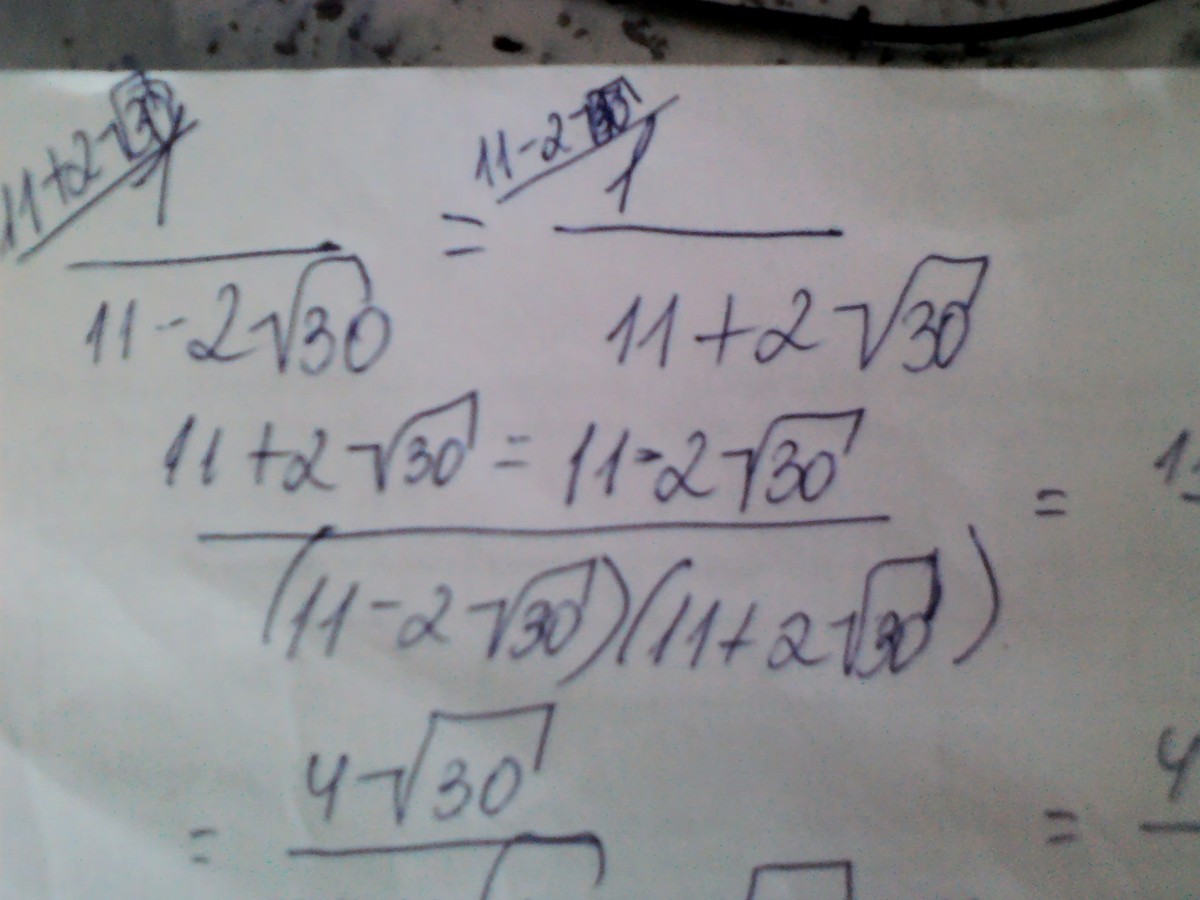 11+2√30 11-2√30
1 = 1
11-2√30 11+2√30
11+2√30 = 11-2√30
(11-2√30)(11+2√30) =
= 4√30 = 4